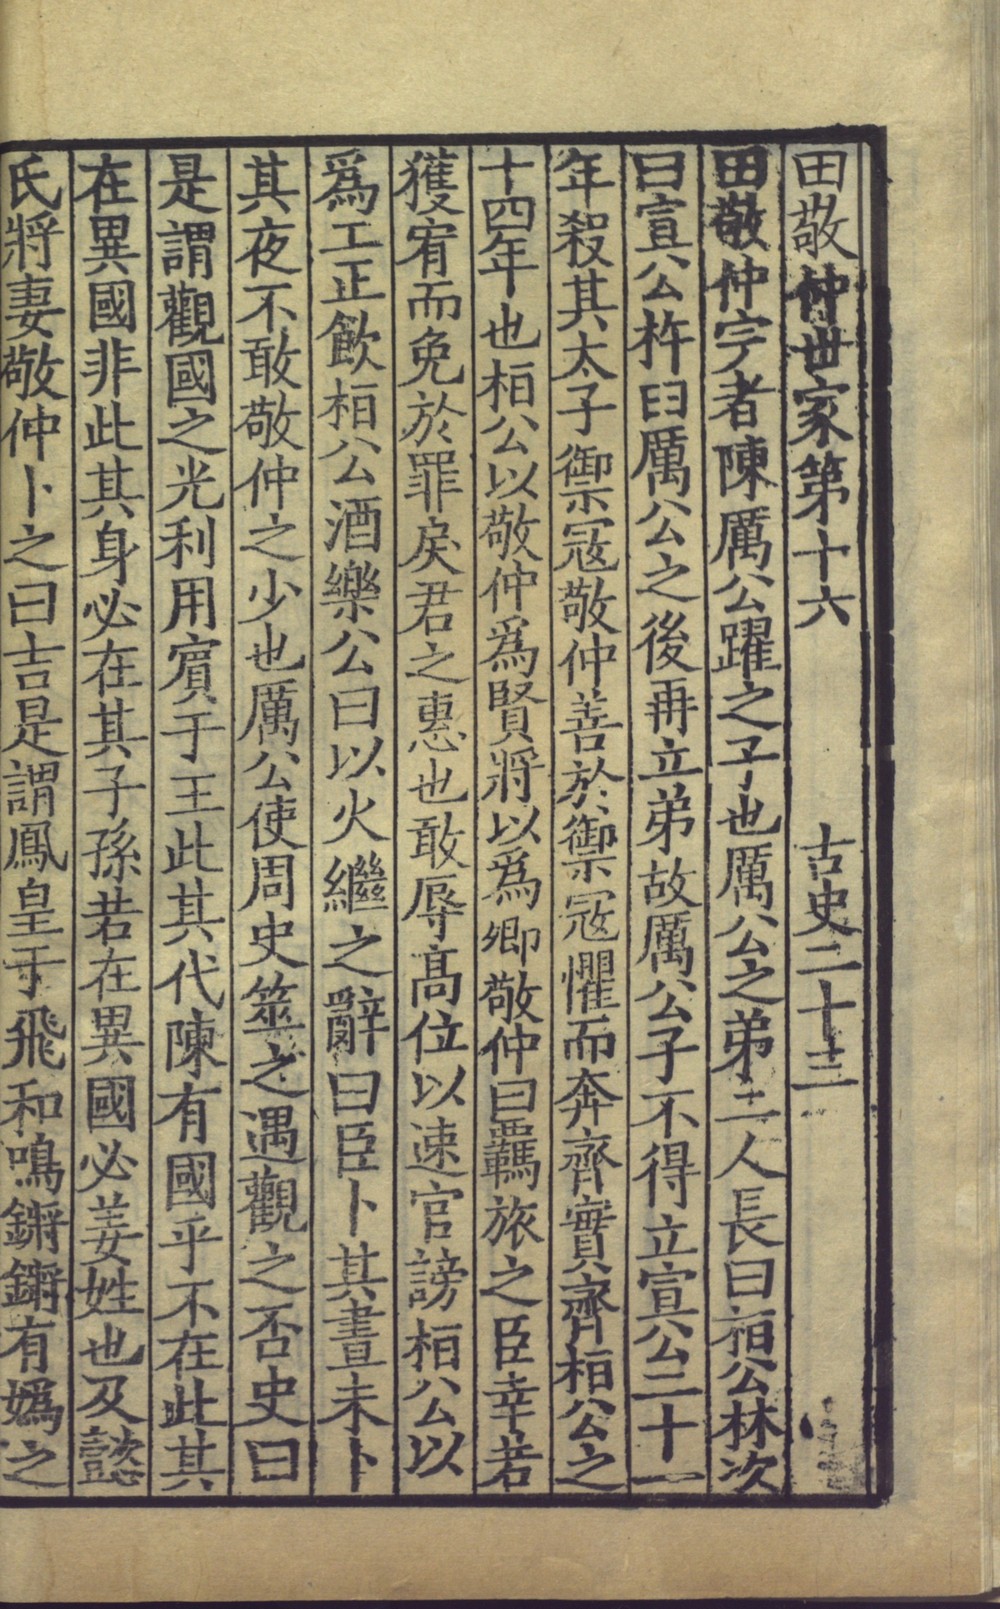 田敬仲世家第十六　古史二十三
田敬仲完者陳厲公躍之子也厲公之弟二人長曰桓公林次
曰宣公杵臼厲公之後再立弟故厲公子不得立宣公二十一
年殺其太子御寇敬仲善於御寇懼而奔齊實齊桓公之
十四年也桓公以敬仲爲賢將以爲卿敬仲曰羈旅之臣幸若
獲宥而免於罪戾君之惠也敢辱高位以速官謗桓公以
爲工正飲桓公酒樂公曰以火繼之辭曰臣卜其晝未卜
其夜不敢敬仲之少也厲公使周史筮之遇觀之否史曰
是謂觀國之光利用賓于王此其代陳有國乎不在此其
在異國非此其身必在其子孫若在異國必姜姓也及懿
氏將妻敬仲卜之曰吉是謂鳳皇于飛和鳴鏘鏘有嬀之